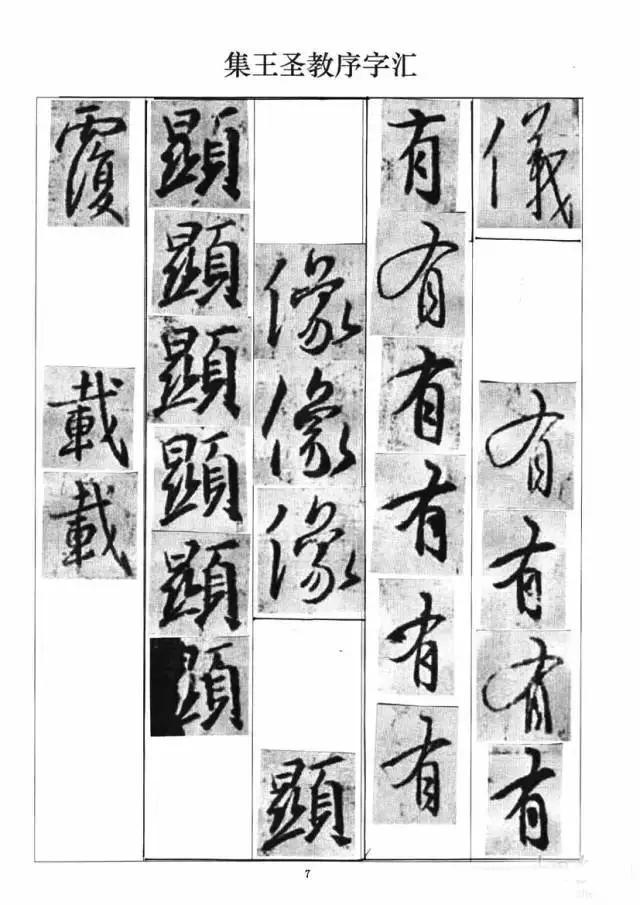 集王圣教序字汇
儀
有有有有
有有有有有有
像像像
顯
顯顯顯顯顯顯
覆
載載
7